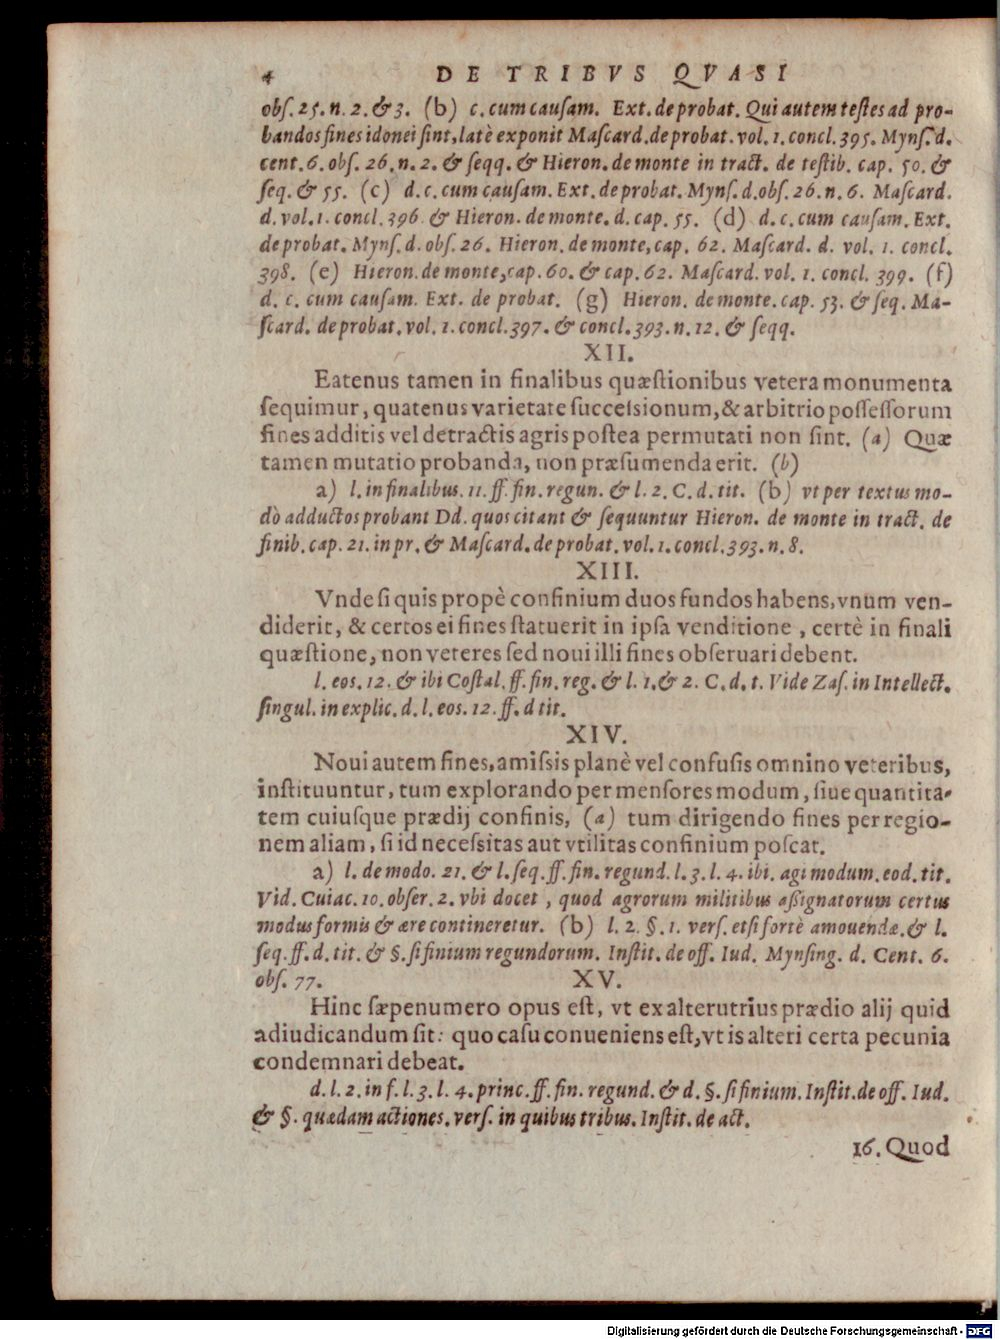 4 DE TRIBVS QVASI
obſ. 25. n. 2. & 3. (b) c. cum cauſam. Ext. de probat. Qui autem teſtes ad pro-
bandos fines idonei ſint, latè exponit Maſcard. de probat. vol. 1. concl. 395. Mynſ. d.
cent. 6. obſ. 26. n. 2. & ſeqq. & Hieron. de monte in tract. de teſtib. cap. 50. &
ſeq. & 55. (c) d. c. cum cauſam. Ext. de probat. Mynſ. d. obſ. 26. n. 6. Maſcard.
d. vol. 1. concl. 396. & Hieron. de monte. d. cap. 55. (d) d. c. cum cauſam. Ext.
de probat. Mynſ. d. obſ. 26. Hieron. de monte, cap. 62. Maſcard. d. vol. 1. concl.
398. (e) Hieron. de monte, cap. 60. & cap. 62. Maſcard. vol. 1. concl. 399. (f)
d. c. cum cauſam. Ext. de probat. (g) Hieron. de monte. cap. 53. & ſeq. Ma-
ſcard. de probat. vol. 1. concl. 397. & concl. 393. n. 12. & ſeqq.
XII.
Eatenus tamen in finalibus quæſtionibus vetera monumenta
ſequimur, quatenus varietate ſucceſsionum, & arbitrio poſſeſſorum
fines additis vel detractis agris poſtea permutati non ſint. (a) Quæ
tamen mutatio probanda, non præſumenda erit. (b)
a) l. in finalibus. 11. ff. fin. regun. & l. 2. C. d. tit. (b) vt per textus mo-
dò adductos probant Dd. quos citant & ſequuntur Hieron. de monte in tract. de
finib. cap. 21. in pr. & Maſcard. de probat. vol. 1. concl. 393. n. 8.
XIII.
Vnde ſi quis propè confinium duos fundos habens, vnum ven-
diderit, & certos ei fines ſtatuerit in ipſa venditione, certè in finali
quæſtione, non veteres ſed noui illi fines obſeruari debent.
l. eos. 12. & ibi Coſtal. ff. fin. reg. & l. 1. & 2. C. d. t. Vide Zaſ. in Intellect.
ſingul. in explic. d. l. eos. 12. ff. d tit.
XIV.
Noui autem fines, amiſsis planè vel confuſis omnino veteribus,
inſtituuntur, tum explorando per menſores modum, ſiue quantita-
tem cuiuſque prædij confinis, (a) tum dirigendo fines per regio-
nem aliam, ſi id neceſsitas aut vtilitas confinium poſcat.
a) l. de modo. 21. & l. ſeq. ff. fin. regund. l. 3. l. 4. ibi. agi modum. eod. tit.
Vid. Cuiac. 10. obſer. 2. vbi docet, quod agrorum militibus aßignatorum certus
modus formis & ære contineretur. (b) l. 2. §. 1. verſ. etſi fortè amouendæ. & l.
ſeq. ff. d. tit. & §. ſi finium regundorum. Inſtit. de off. Iud. Mynſing. d. Cent. 6.
obſ. 77. XV.
Hinc ſæpenumero opus eſt, vt ex alterutrius prædio alij quid
adiudicandum ſit: quo caſu conueniens eſt, vt is alteri certa pecunia
condemnari debeat.
d. l. 2. in f. l. 3. l. 4. princ. ff. fin. regund. & d. §. ſi finium. Inſtit. de off. Iud.
& §. quædam actiones. verſ. in quibus tribus. Inſtit. de act.
16. Quod
Digitalisierung gefördert durch die Deutsche Forschungsgemeinschaft - DFG